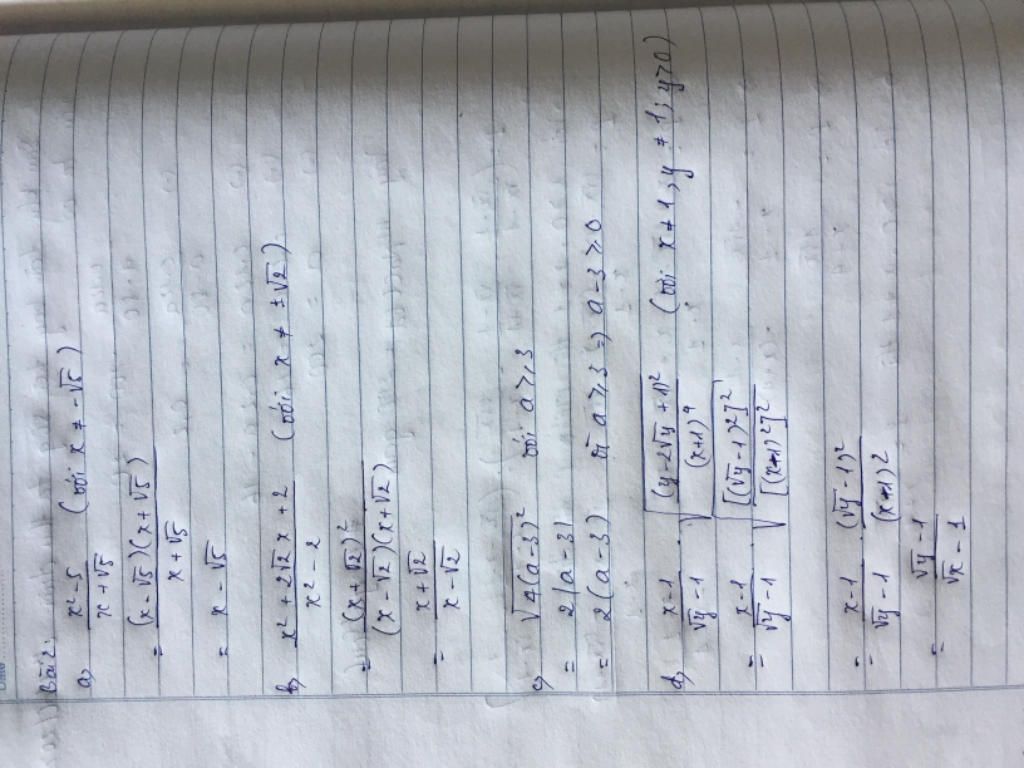 Bài 2.
a, (x² - 5)/(x + √5) (với x ≠ -√5)
= (x - √5)(x + √5)/(x + √5)
= x - √5
b, (x² + 2√2 x + 2)/(x² - 2) (với x ≠ ±√2)
= (x + √2)²/(x - √2)(x + √2)
= (x + √2)/(x - √2)
c, √4(a - 3)² với a ≥ 3
= 2|a - 3|
= 2(a - 3) vì a ≥ 3 => a - 3 ≥ 0
d, (x - 1)/(√y - 1) · √((y - 2√y + 1)²/(x + 1)⁴) (với x ≠ 1; y ≠ 1; y > 0)
= (x - 1)/(√y - 1) · √([(√y - 1)²]²/[(x + 1)²]²)
= (x - 1)/(√y - 1) · (√y - 1)²/(x + 1)²
= (√y - 1)/(√x - 1)